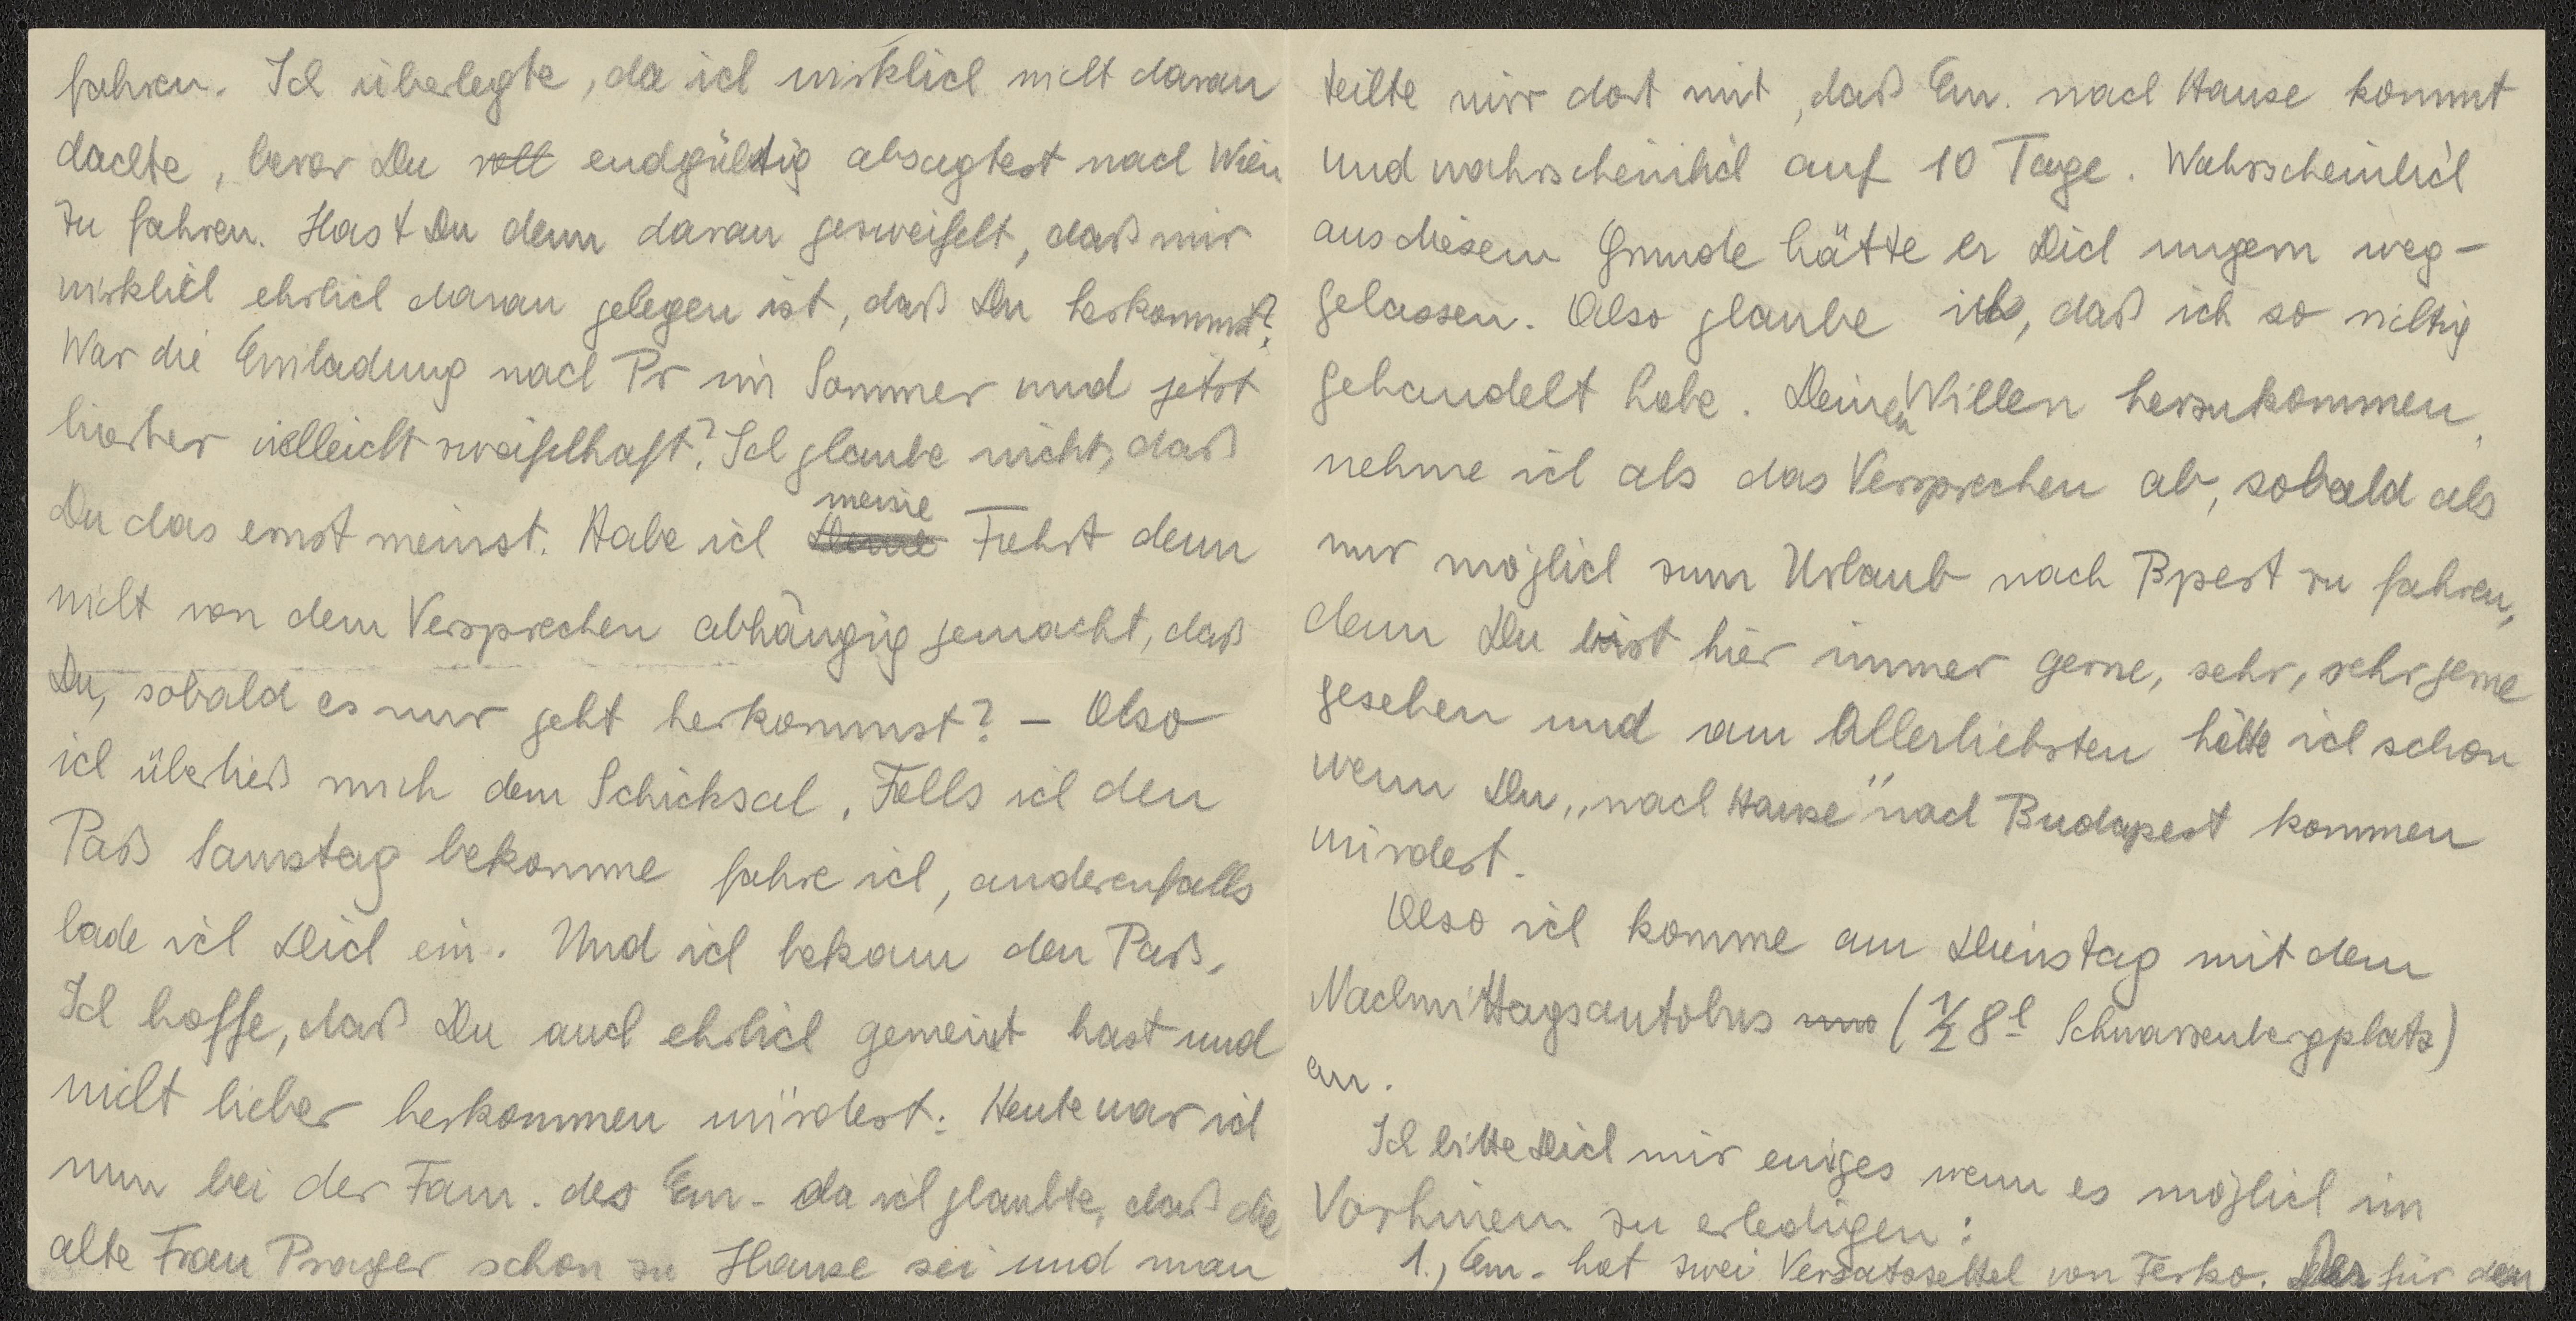 fahren. Ich überlegte, da ich wirklich nicht daran
dachte, bevor Du voll endgültig absagtest nach Wien
zu fahren. Hast Du denn daran gezweifelt, daß mir
wirklich ehrlich daran gelegen ist, daß Du herkommst?
War die Einladung nach Pr im Sommer und jetzt
hierher vielleicht zweifelhaft? Ich glaube nicht, daß
Du das ernst meinst. Habe ich Deine meine Fahrt denn
nicht von dem Versprechen abhängig gemacht, daß
Du, sobald es nur geht herkommst? – Also
ich überließ mich dem Schicksal. Falls ich den
Paß Samstag bekomme fahre ich, anderenfalls
lade ich Dich ein. Und ich bekam den Paß.
Ich hoffe, daß Du auch ehrlich gemeint hast und
nicht lieber herkommen würdest. Heute war ich
nun bei der Fam. des Em. da ich glaubte, daß die
alte Frau Prager schon zu Hause sei und man
teilte mir dort mit, daß Em. nach Hause kommt
und wahrscheinlich auf 10 Tage. Wahrscheinlich
aus diesem Grunde hätte er Dich ungern weg-
gelassen. Also glaube ich, daß ich so richtig
gehandelt habe. Deinen Willen herzukommen,
nehme ich als das Versprechen ab, sobald als
nur möglich zum Urlaub nach Bpest zu fahren,
denn Du bist hier immer gerne, sehr, sehr gerne
gesehen und am Allerliebsten hätte ich schon
wenn Du „nach Hause" nach Budapest kommen
würdest.
Also ich komme am Dienstag mit dem
Nachmittagsautobus (½ 8h Schwarzenbergplatz)
an.
Ich bitte Dich mir einiges wenn es möglich im
Vorhinein zu erledigen:
1., Em. hat zwei Versatzzettel von Ferko. Der für den